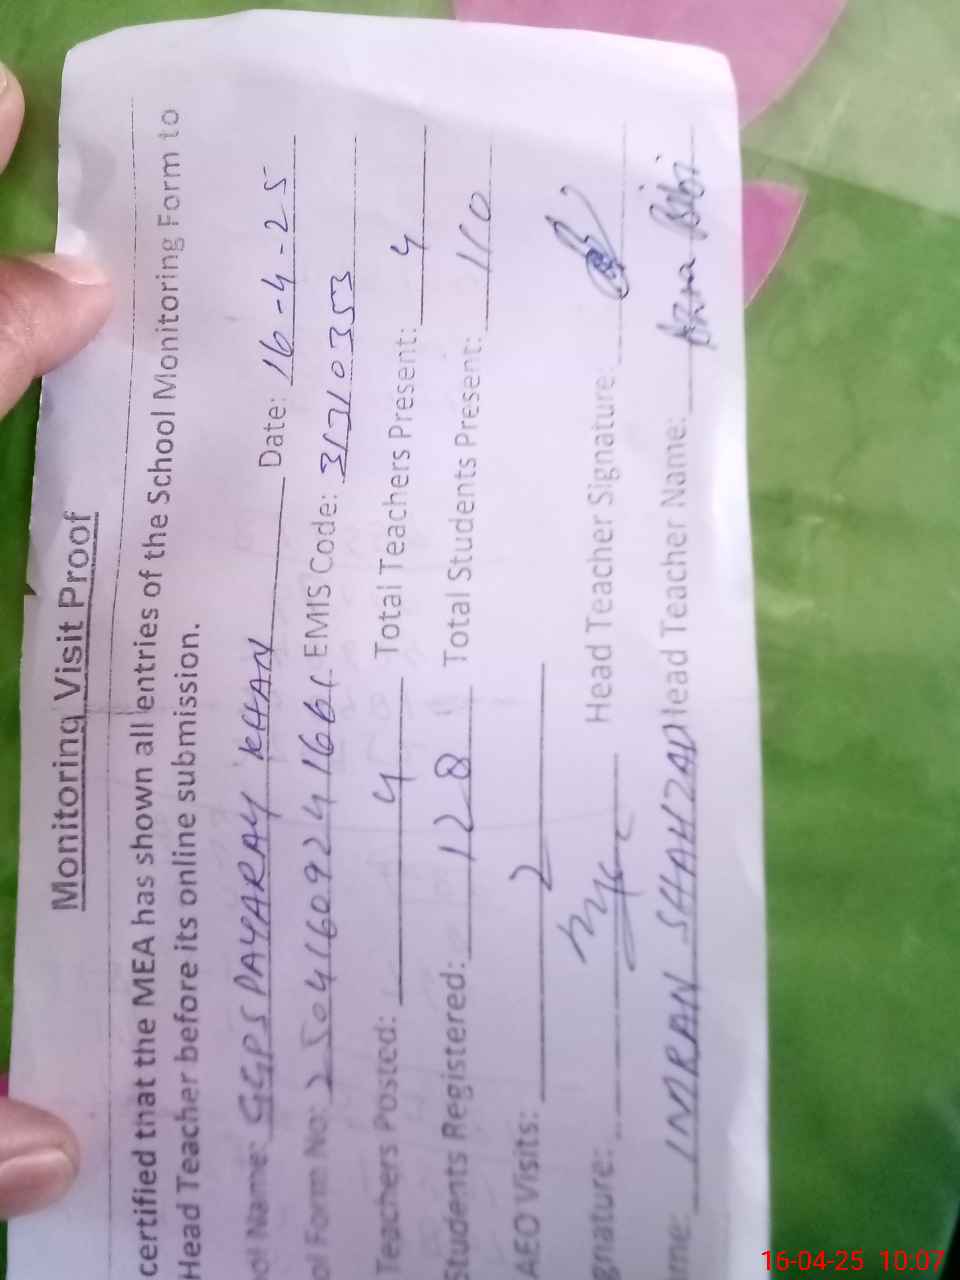 Monitoring Visit Proof
certified that the MEA has shown all entries of the School Monitoring Form to
Head Teacher before its online submission.
ol Name: GGPS PAYARAY KHAN Date: 16-4-25
ol Form No: 25041609241661 EMIS Code: 31310353
Teachers Posted: 4 Total Teachers Present: 4
Students Registered: 128 Total Students Present: 110
AEO Visits: 2
gnature: Head Teacher Signature:
me: IMRAN SHAHZAD Head Teacher Name: Azra Bibi
16-04-25 10:07